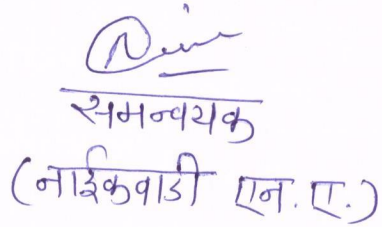 समन्वयक
(नाईकवाडी एन. ए.)